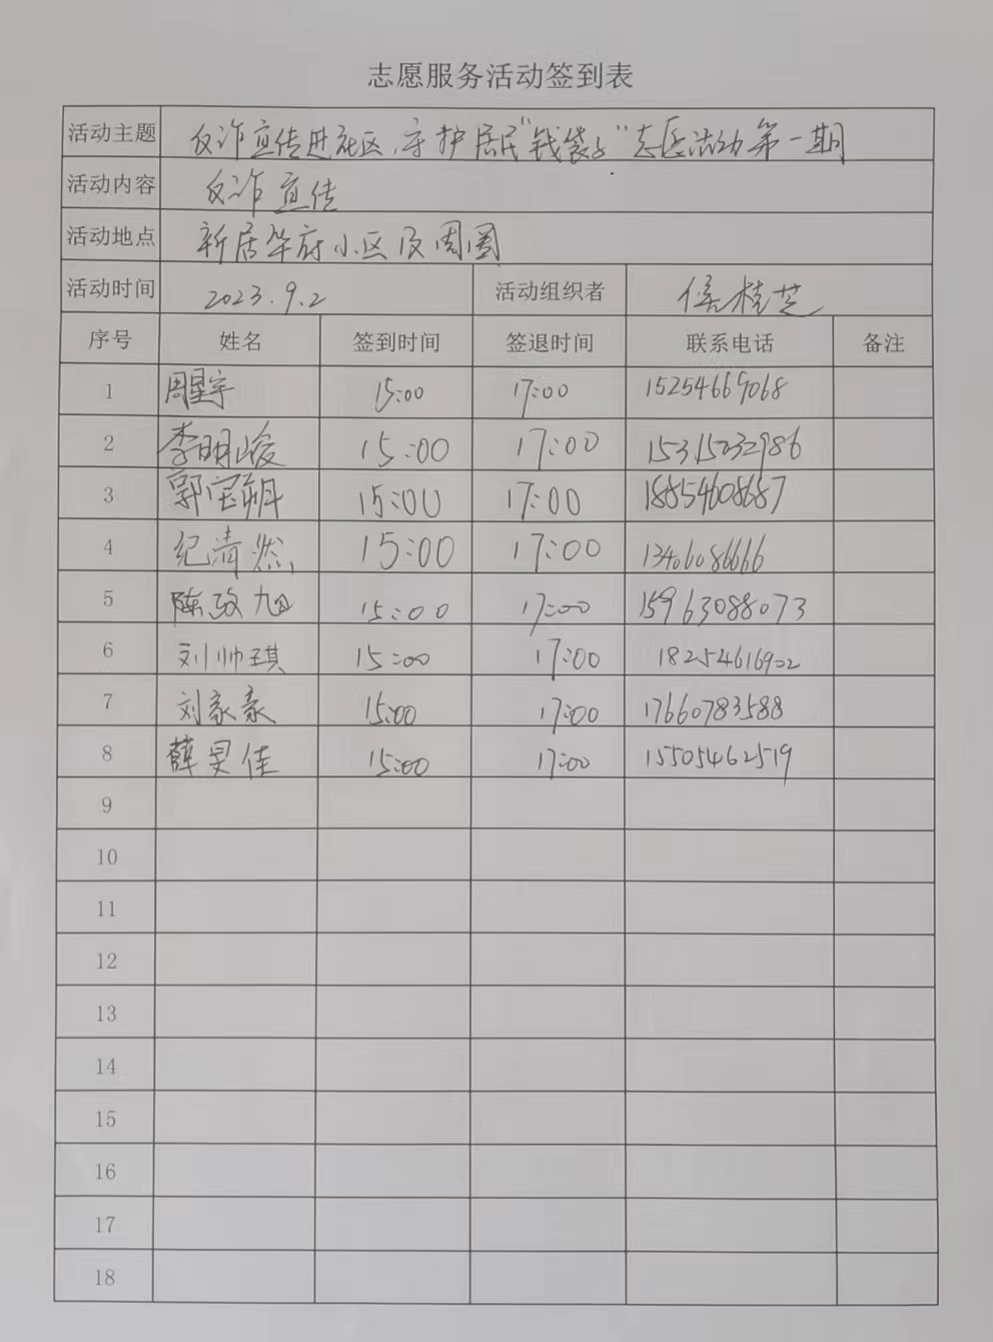 志愿服务活动签到表
活动主题 反诈宣传进社区,守护居民"钱袋子"志愿活动第一期
活动内容 反诈宣传
活动地点 新居华府小区及周围
活动时间 2023.9.2 活动组织者 侯桂芝
序号 姓名 签到时间 签退时间 联系电话 备注
1 周星宇 15:00 17:00 15254669068
2 李明峻 15:00 17:00 15315232986
3 郭宝朋 15:00 17:00 18854608687
4 纪清然 15:00 17:00 13406086666
5 陈政旭 15:00 17:00 15963088073
6 刘帅琪 15:00 17:00 18254616902
7 刘家豪 15:00 17:00 17660783588
8 薛旻佳 15:00 17:00 15505462519
9
10
11
12
13
14
15
16
17
18